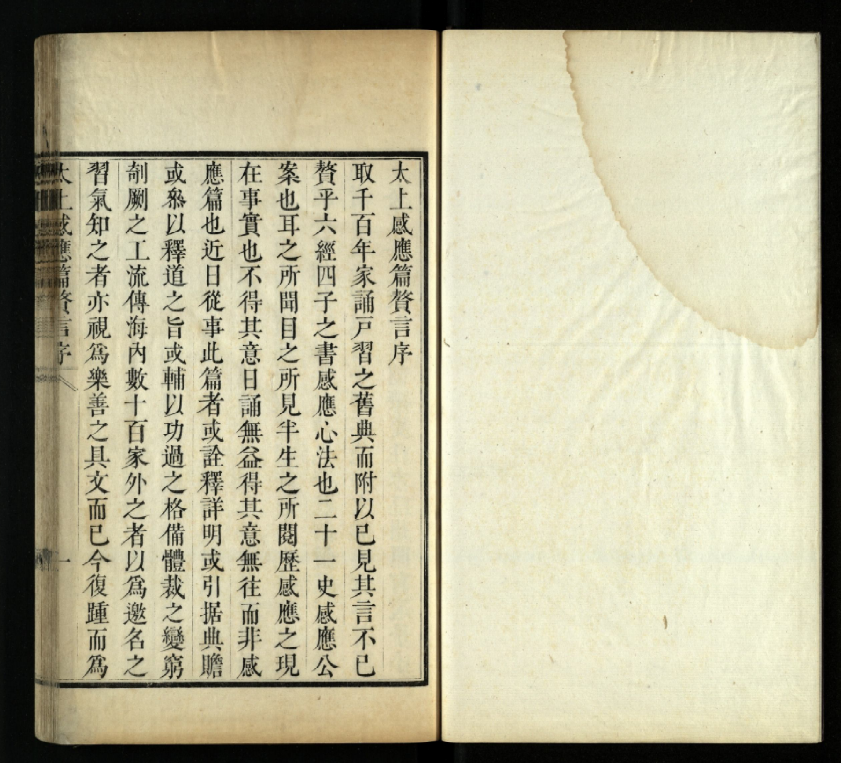 太上感應篇贅言序
取千百年家誦戸習之舊典而附以已見其言不已
贅乎六經四子之書感應心法也二十一史感應公
案也耳之所聞目之所見半生之所閱歷感應之現
在事實也不得其意日誦無益得其意無徃而非感
應篇也近日從事此篇者或詮釋詳明或引据典贍
或叅以釋道之旨或輔以功過之格備體裁之變窮
剞劂之工流傳海內數十百家外之者以爲邀名之
習氣知之者亦視爲樂善之具文而已今復踵而爲
太上感應篇贅言序 一